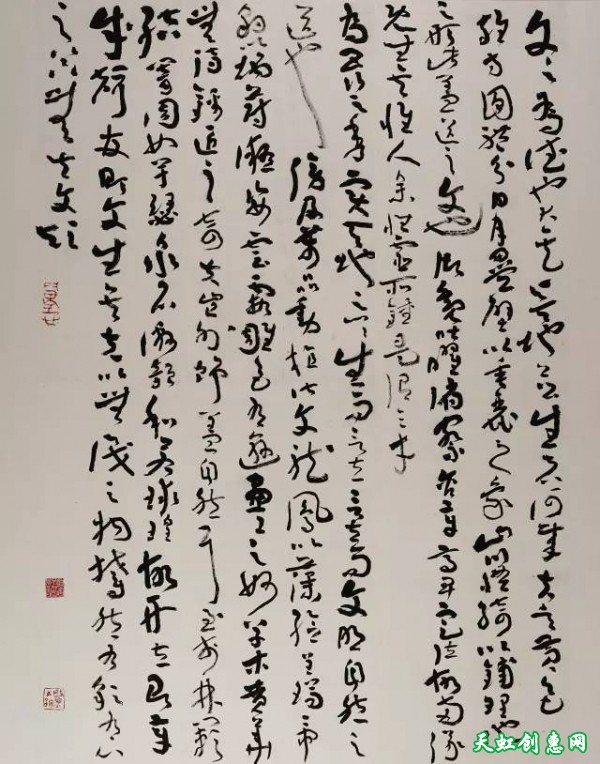 文之為德也大矣與天地並生者何哉夫玄黃色
雜方圓體分日月疊璧以垂麗天之象山川煥綺以鋪理地
之形此蓋道之文也仰觀吐曜俯察含章高卑定位故兩儀
既生矣惟人參性靈所鍾是謂三才
為五行之秀實天地之心生而言立言立而文明自然之
道也傍及萬品動植皆文龍鳳以藻繪呈瑞虎
豹以炳蔚凝姿雲霞雕色有逾畫工之妙草木賁華
無待錦匠之奇夫豈外飾蓋自然耳至於林籟
結響調如竽瑟泉石激韻和若球鍠故形立則章
成聲發則文生矣夫以無識之物鬱然有彩有心
之器其無文歟
天虹创惠网